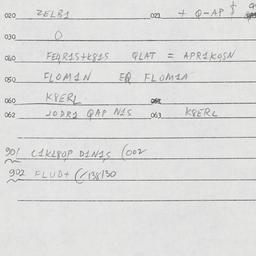 020 ZEL81 021 + Q-AP $
030 O
040 FEYR1S+K81S QLAT = APR1KOSN
050 FLOM1N EQ FLOM1A
060 K8ERL
062 JODR1 QAP N1S 063 K8ERL
901 C1KL80P D1N1S (002
902 FLUD+ (/138/30